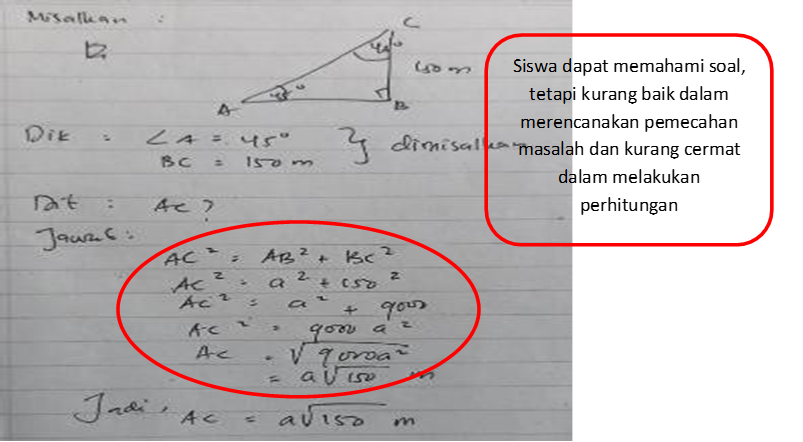 Misalkan :
C
45°
150 m
45°
A
B
Dik : ∠A = 45° } dimisalkan
BC = 150 m
Dit : AC ?
Jawab :
AC² = AB² + BC²
AC² = a² + 150²
AC² = a² + 9000
AC² = 9000 a²
AC = √9000a²
= a√150 m
Jadi, AC = a√150 m
Siswa dapat memahami soal,
tetapi kurang baik dalam
merencanakan pemecahan
masalah dan kurang cermat
dalam melakukan
perhitungan